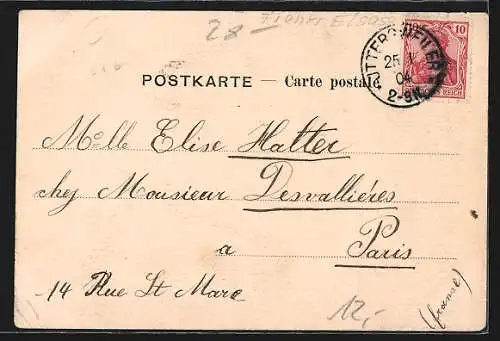 28 –
POSTKARTE — Carte postale
10
25
04
2-3N
REICH
Mlle Elise Halter
chez Monsieur Desvallières
a Paris
-14 Rue St Marc
12,-
(france)